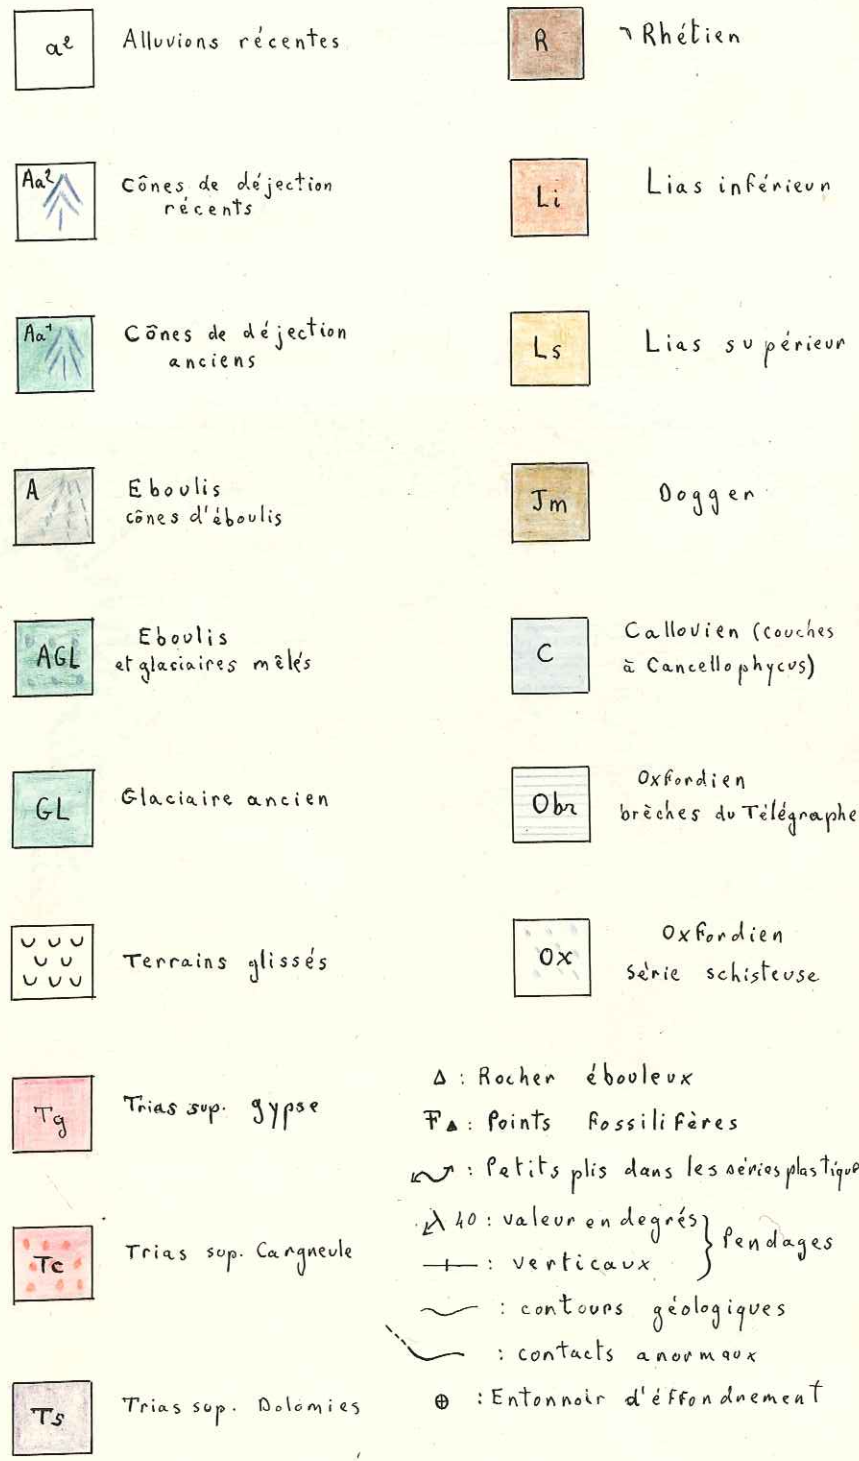 a²
Alluvions récentes
Aa²
Cônes de déjection
récents
Aa¹
Cônes de déjection
anciens
A
Eboulis
cônes d'éboulis
AGL
Eboulis
et glaciaires mêlés
GL
Glaciaire ancien
Terrains glissés
Tg
Trias sup. gypse
Tc
Trias sup. Cargneule
Ts
Trias sup. Dolomies
R
Rhétien
Li
Lias inférieur
Ls
Lias supérieur
Jm
Dogger
C
Callovien (couches
à Cancellophycus)
Obr
Oxfordien
brèches du Télégraphe
Ox
Oxfordien
série schisteuse
Δ : Rocher ébouleux
F▲ : Points fossilifères
: Petits plis dans les séries plastique
40 : valeur en degrés
: verticaux
} Pendages
: contours géologiques
: contacts anormaux
⊕ : Entonnoir d'éffondrement